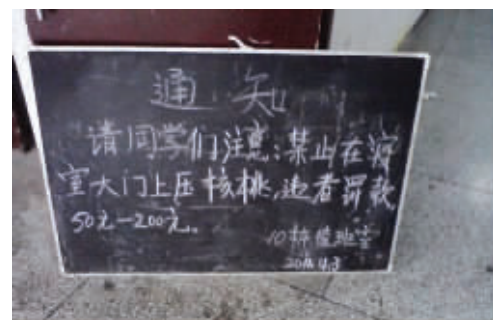 通知
请同学们注意:禁止在寝
室大门上压核桃,违者罚款
50元-200元。
10栋值班室